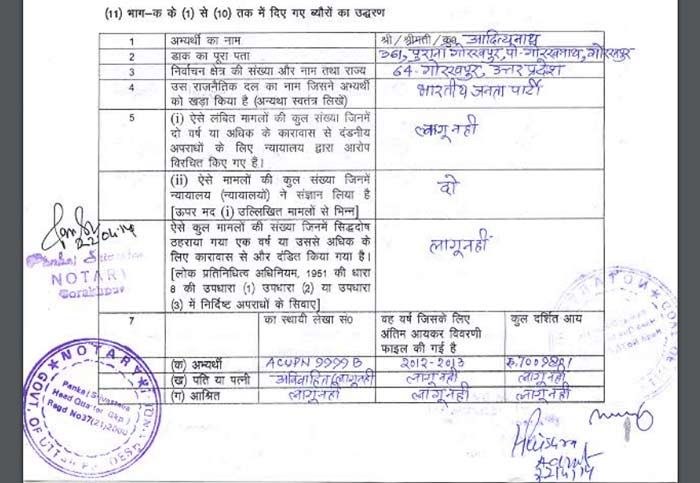 (11) भाग-क के (1) से (10) तक में दिए गए ब्यौरों का उद्धरण
1 अभ्यर्थी का नाम श्री / श्रीमती / कु0 आदित्यनाथ
2 डाक का पूरा पता 361, पुराना गोरखपुर, पो-गोरखनाथ, गोरखपुर
3 निर्वाचन क्षेत्र की संख्या और नाम तथा राज्य 64-गोरखपुर, उत्तर प्रदेश
4 उस राजनैतिक दल का नाम जिसने अभ्यर्थी भारतीय जनता पार्टी
को खड़ा किया है (अन्यथा स्वतंत्र लिखें)
5 (i) ऐसे लंबित मामलों की कुल संख्या जिनमें लागू नहीं
दो वर्ष या अधिक के कारावास से दंडनीय
अपराधों के लिए न्यायालय द्वारा आरोप
विरचित किए गए है।
(ii) ऐसे मामलों की कुल संख्या जिनमें दो
न्यायालय (न्यायालयों) ने संज्ञान लिया है
[ऊपर मद (i) उल्लिखित मामलों से भिन्न]
ऐसे कुल मामलों की संख्या जिनमें सिद्धदोष लागू नहीं
ठहराया गया एक वर्ष या उससे अधिक के
लिए कारावास से और दंडित किया गया है।
[लोक प्रतिनिधित्व अधिनियम, 1951 की धारा
8 की उपधारा (1) उपधारा (2) या उपधारा
(3) में निर्दिष्ट अपराधों के सिवाए]
22/04/14
NOTARY
Gorakhpur
7 का स्थायी लेखा सं0 वह वर्ष जिसके लिए कुल दर्शित आय
अंतिम आयकर विवरणी
फाइल की गई है
(क) अभ्यर्थी ACUPN 9999B 2012-2013
(ख) पति या पत्नी अविवाहित/लागू नहीं लागू नहीं लागू नहीं
(ग) आश्रित लागू नहीं लागू नहीं लागू नहीं
NOTARY
Pankaj Srivastava
Head Quarter Gkp
Regd No37(21)2000
GOVT. OF UTTAR
22/4/14